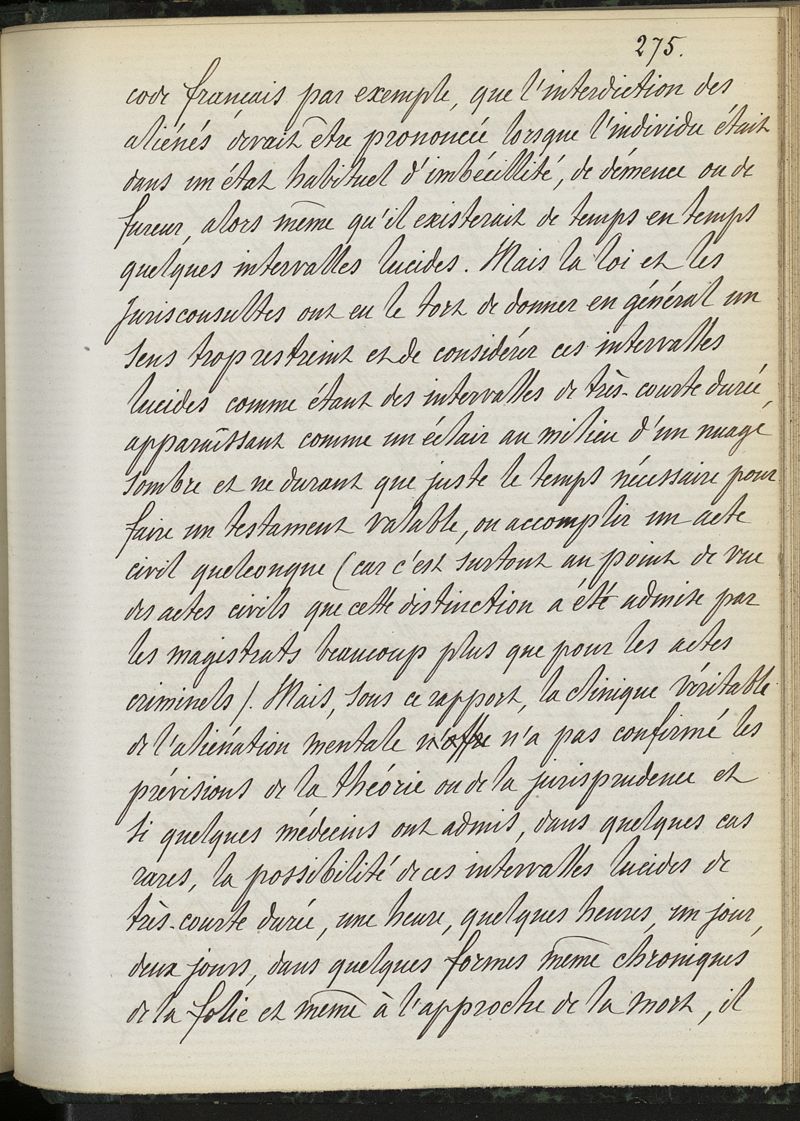 275.
code français par exemple, que l'interdiction des
aliénés devait être prononcée lorsque l'individu était
dans un état habituel d'imbécillité, de démence ou de
fureur, alors même qu'il existerait de temps en temps
quelques intervalles lucides. Mais la loi et les
Jurisconsultes ont eu le tort de donner en général un
sens trop restreint et de considérer ces intervalles
lucides comme étant des intervalles de très-courte durée,
apparaîssant comme un éclair au milieu d'un nuage
sombre et ne durant que juste le temps nécessaire pour
faire un testament valable, ou accomplir un acte
civil quelconque (car c'est surtout au point de vue
des actes civils que cette distinction a été admise par
les magistrats beaucoup plus que pour les actes
criminels). Mais, sous ce rapport, la clinique véritable
de l'aliénation mentale n'offre n'a pas confirmé les
prévisions de la théorie ou de la jurisprudence et
si quelques médecins ont admis, dans quelques cas
rares, la possibilité de ces intervalles lucides de
très-courte durée, une heure, quelques heures, un jour,
deux jours, dans quelques formes même chroniques
de la folie et même à l'approche de la mort, il